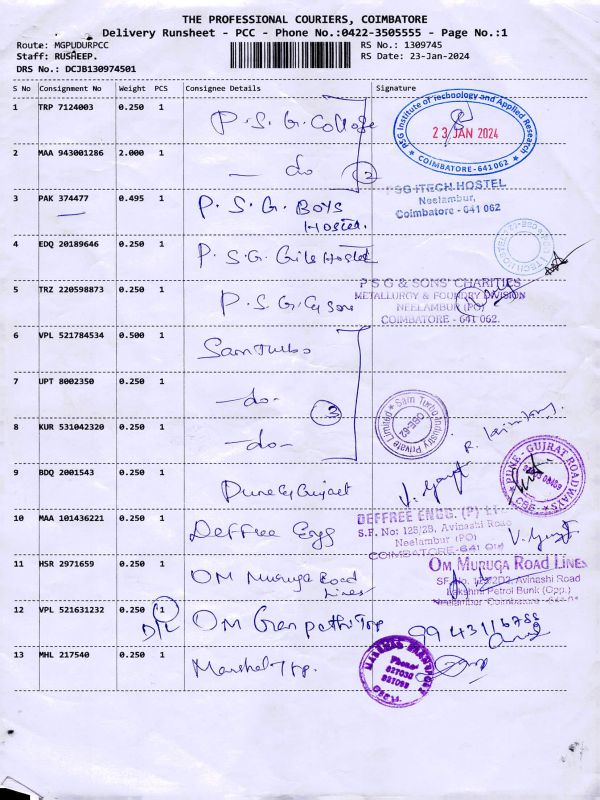 THE PROFESSIONAL COURIERS, COIMBATORE
Delivery Runsheet - PCC - Phone No.:0422-3505555 - Page No.:1
Route: MGPUDURPCC RS No.: 1309745
Staff: RUSHEEP. RS Date: 23-Jan-2024
DRS No.: DCJB130974501
S No Consignment No Weight PCS Consignee Details Signature
1 TRP 7124003 0.250 1 P.S.G. College
PSG Institute of Technology and Applied Research
23 JAN 2024
COIMBATORE - 641 062
2 MAA 943001286 2.000 1 - do 2
PSG ITECH HOSTEL
Neelambur,
Coimbatore - 641 062
3 PAK 374477 0.495 1 P.S.G. BOYS
Hostel.
4 EDQ 20189646 0.250 1 P.S.G. Girls Hostel
P S G & SONS' CHARITIES
METALLURGY & FOUNDRY DIVISION
NEELAMBUR (PO)
COIMBATORE - 641 062.
5 TRZ 220598873 0.250 1 P.S.G. & Sons
6 VPL 521784534 0.500 1 Sam Turbo
7 UPT 8002350 0.250 1 -do-
3
Sam Turbo Industry Private Limited
CBE-62
8 KUR 531042320 0.250 1 -do-
9 BDQ 2001543 0.250 1 Pune Gujraet
PUNE - GUJRAT ROADWAYS
CBE
10 MAA 101436221 0.250 1 Deffree Engg
DEFFREE ENGG. (P) LT
S.F. No: 125/2B, Avinashi Road
Neelambur (PO)
COIMBATORE-641 062
11 HSR 2971659 0.250 1 OM Muruga Road
Lines
OM MURUGA ROAD LINES
Avinashi Road
Lakshmi Petrol Bunk (Opp.)
Neelambur, Coimbatore
12 VPL 521631232 0.250 1 OM Ganpathi Tpp
D/L
13 MHL 217540 0.250 1 Marshel Tpp.
Phone: